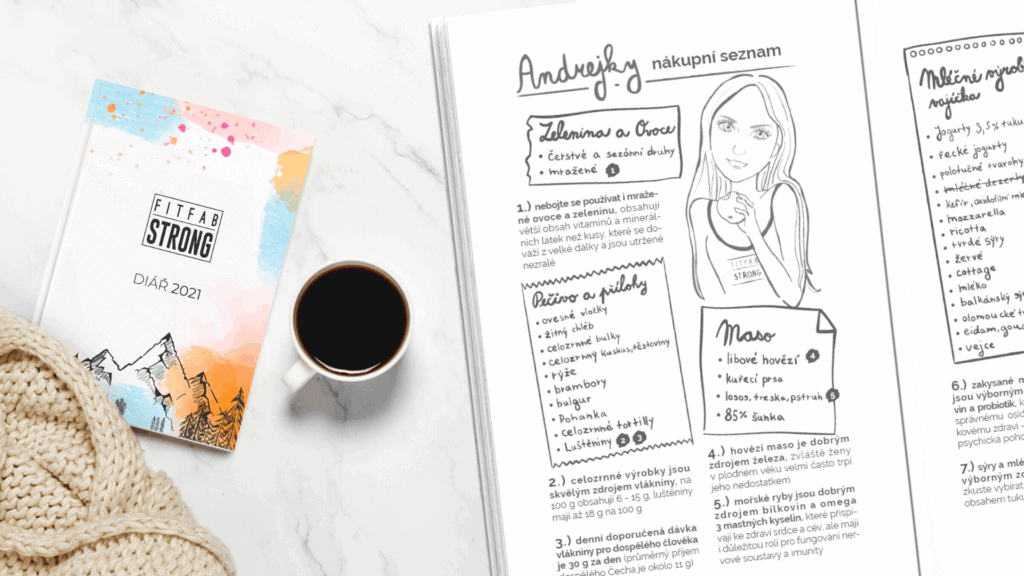 FITFAB
STRONG
DIÁŘ 2021
Andrejky nákupní seznam
Zelenina a Ovoce
• čerstvé a sezónní druhy
• mražené 1
1.) nebojte se používat i mraže-
né ovoce a zeleninu, obsahují
větší obsah vitamínů a minerál-
ních látek než kusy, které se do-
váží z velké dálky a jsou utržené
nezralé
Pečivo a přílohy
• ovesné vločky
• žitný chléb
• celozrnné bulky
• celozrnný kuskus, těstoviny
• rýže
• brambory
• bulgur
• Pohanka
• celozrnné tortilly
• Luštěniny 2 3
2.) celozrnné výrobky jsou
skvělým zdrojem vlákniny, na
100 g obsahují 6 - 15 g, luštěniny
mají až 18 g na 100 g
3.) denní doporučená dávka
vlákniny pro dospělého člověka
je 30 g za den (průměrný příjem
dospělého Čecha je okolo 11 g)
FITFAB
STRONG
Maso
• libové hovězí 4
• kuřecí prsa
• losos, treska, pstruh 5
• 85% šunka
4.) hovězí maso je dobrým
zdrojem železa, zvláště ženy
v plodném věku velmi často trpí
jeho nedostatkem
5.) mořské ryby jsou dobrým
zdrojem bílkovin a omega
3 mastných kyselin, které přispí-
vají ke zdraví srdce a cév, ale mají
i důležitou roli pro fungování ner-
vové soustavy a imunity
Mléčné výrob
vajíčka
• Jogurty 3,5% tuku
• řecké jogurty
• polotučné tvarohy
• mléčné dezerty
• kefír, acidofilní ml
• mozzarella
• ricotta
• tvrdé sýry
• žervé
• cottage
• mléko
• balkánský sý
• olomoucké t
• eidam, gou
• vejce
6.) zakysané m
jsou výborným
vin a probiotik, k
správnému osíd
kovému zdraví -
psychická poho
7.) sýry a mlé
výborným zd
zkuste vybírat
obsahem tuku